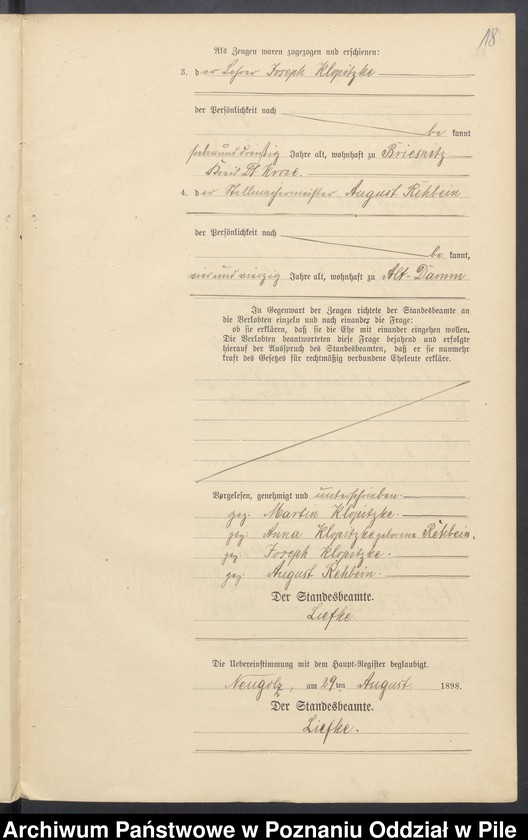 18
Als Zeugen waren zugezogen und erschienen:
3. der Lehrer Joseph Klopitzke
der Persönlichkeit nach
be kannt
siebenunddreißig Jahre alt, wohnhaft zu Briesnitz
Kreis Dt Krone.
4. der Stellmachermeister August Rehbein
der Persönlichkeit nach
be kannt,
vierundvierzig Jahre alt, wohnhaft zu Alt-Damm
In Gegenwart der Zeugen richtete der Standesbeamte an
die Verlobten einzeln und nach einander die Frage:
ob sie erklären, daß sie die Ehe mit einander eingehen wollen.
Die Verlobten beantworteten diese Frage bejahend und erfolgte
hierauf der Ausspruch des Standesbeamten, daß er sie nunmehr
kraft des Gesetzes für rechtmäßig verbundene Eheleute erkläre.
Vorgelesen, genehmigt und unterschrieben.
gez: Martin Klopitzke.
gez: Anna Klopitzke geborene Rehbein.
gez: Joseph Klopitzke.
gez: August Rehbein.
Der Standesbeamte.
Liefke
Die Uebereinstimmung mit dem Haupt-Register beglaubigt.
Neugolz, am 29ten August 1898.
Der Standesbeamte.
Liefke.
Archiwum Państwowe w Poznaniu Oddział w Pile